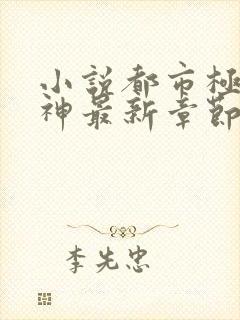 小说都市极
神最新章節
李先忠